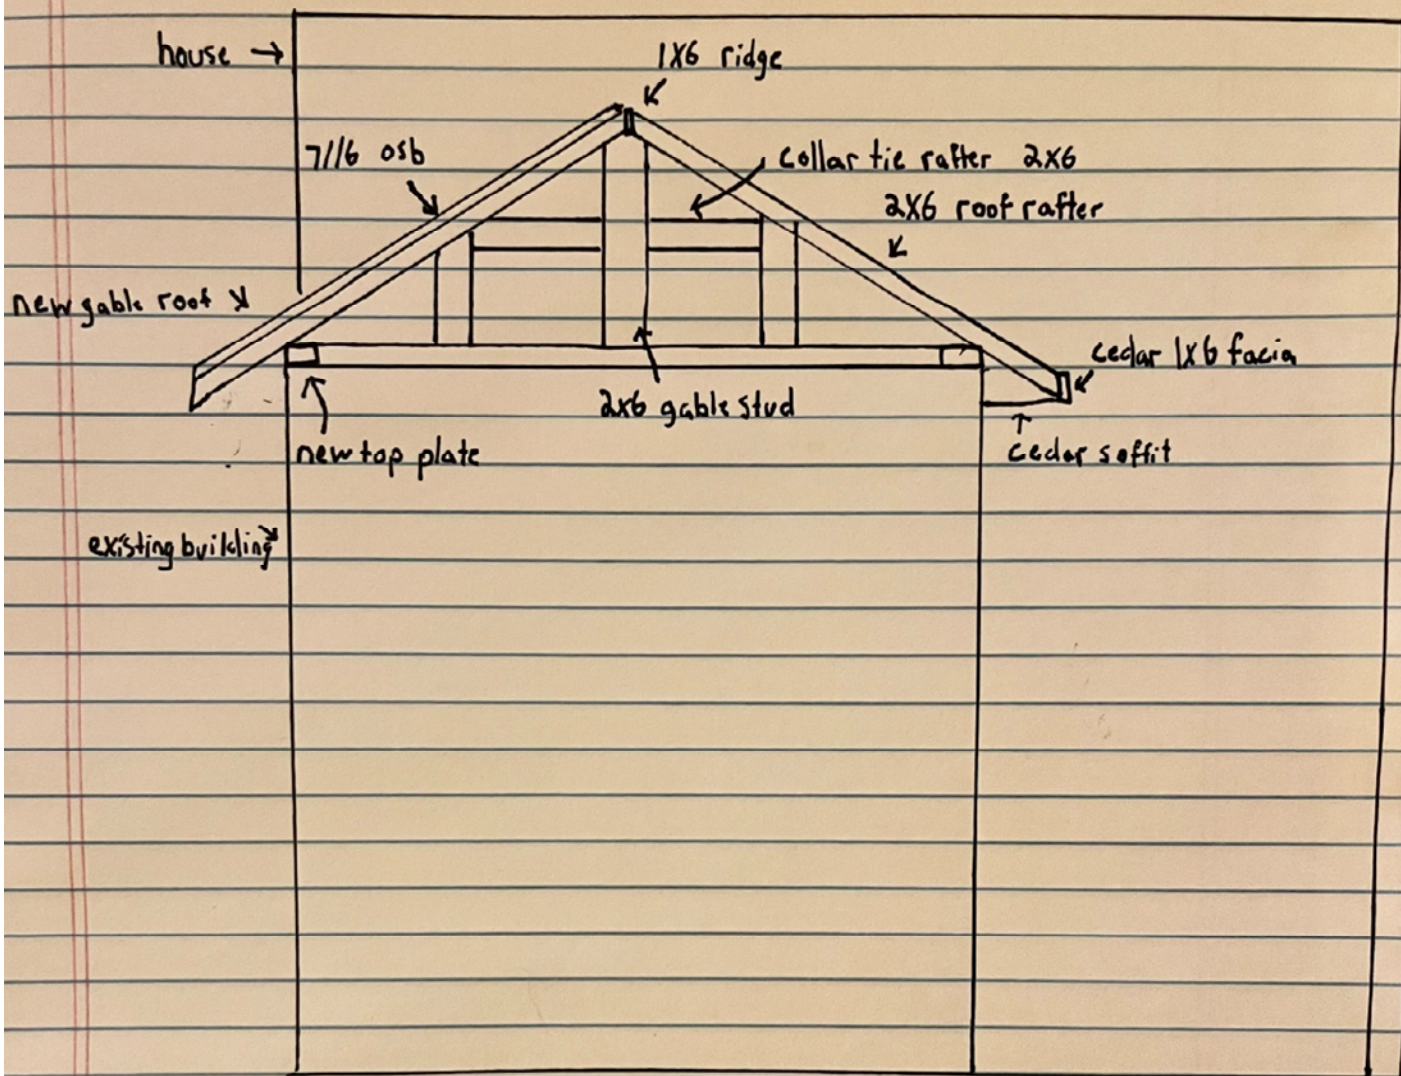 house →
1X6 ridge
7/16 osb
collar tie rafter 2X6
2X6 roof rafter
new gable roof
cedar 1X6 facia
2x6 gable stud
new top plate
cedar soffit
existing building